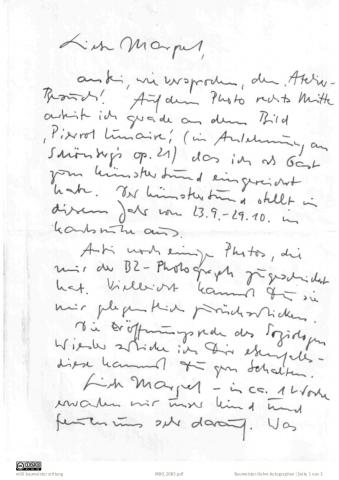 Liebe Margot,
anbei, wie versprochen, den "Atelier-
Besuch". Auf dem Photo rechts Mitte
arbeite ich gerade an dem Bild
"Pierrot lunaire", (in Anlehnung an
Schönbergs op. 21) das ich als Gast
zum Künstlerbund eingereicht
habe. Der Künstlerbund stellt in
diesem Jahr vom 23.9.-29.10. in
Karlsruhe aus.
Anbei noch einige Photos, die
mir der BZ-Photograph zugeschickt
hat. Vielleicht kannst Du sie
mir gelegentlich zurückschicken.
Die Eröffnungsrede des Soziologen
schicke ich Dir ebenfalls-
diese kannst Du gern behalten.
Liebe Margot - in ca. 1 Woche
erwarten wir unser Kind und
freuen uns sehr darauf. Was
willi baumeister stiftung
Seite 1 von 3